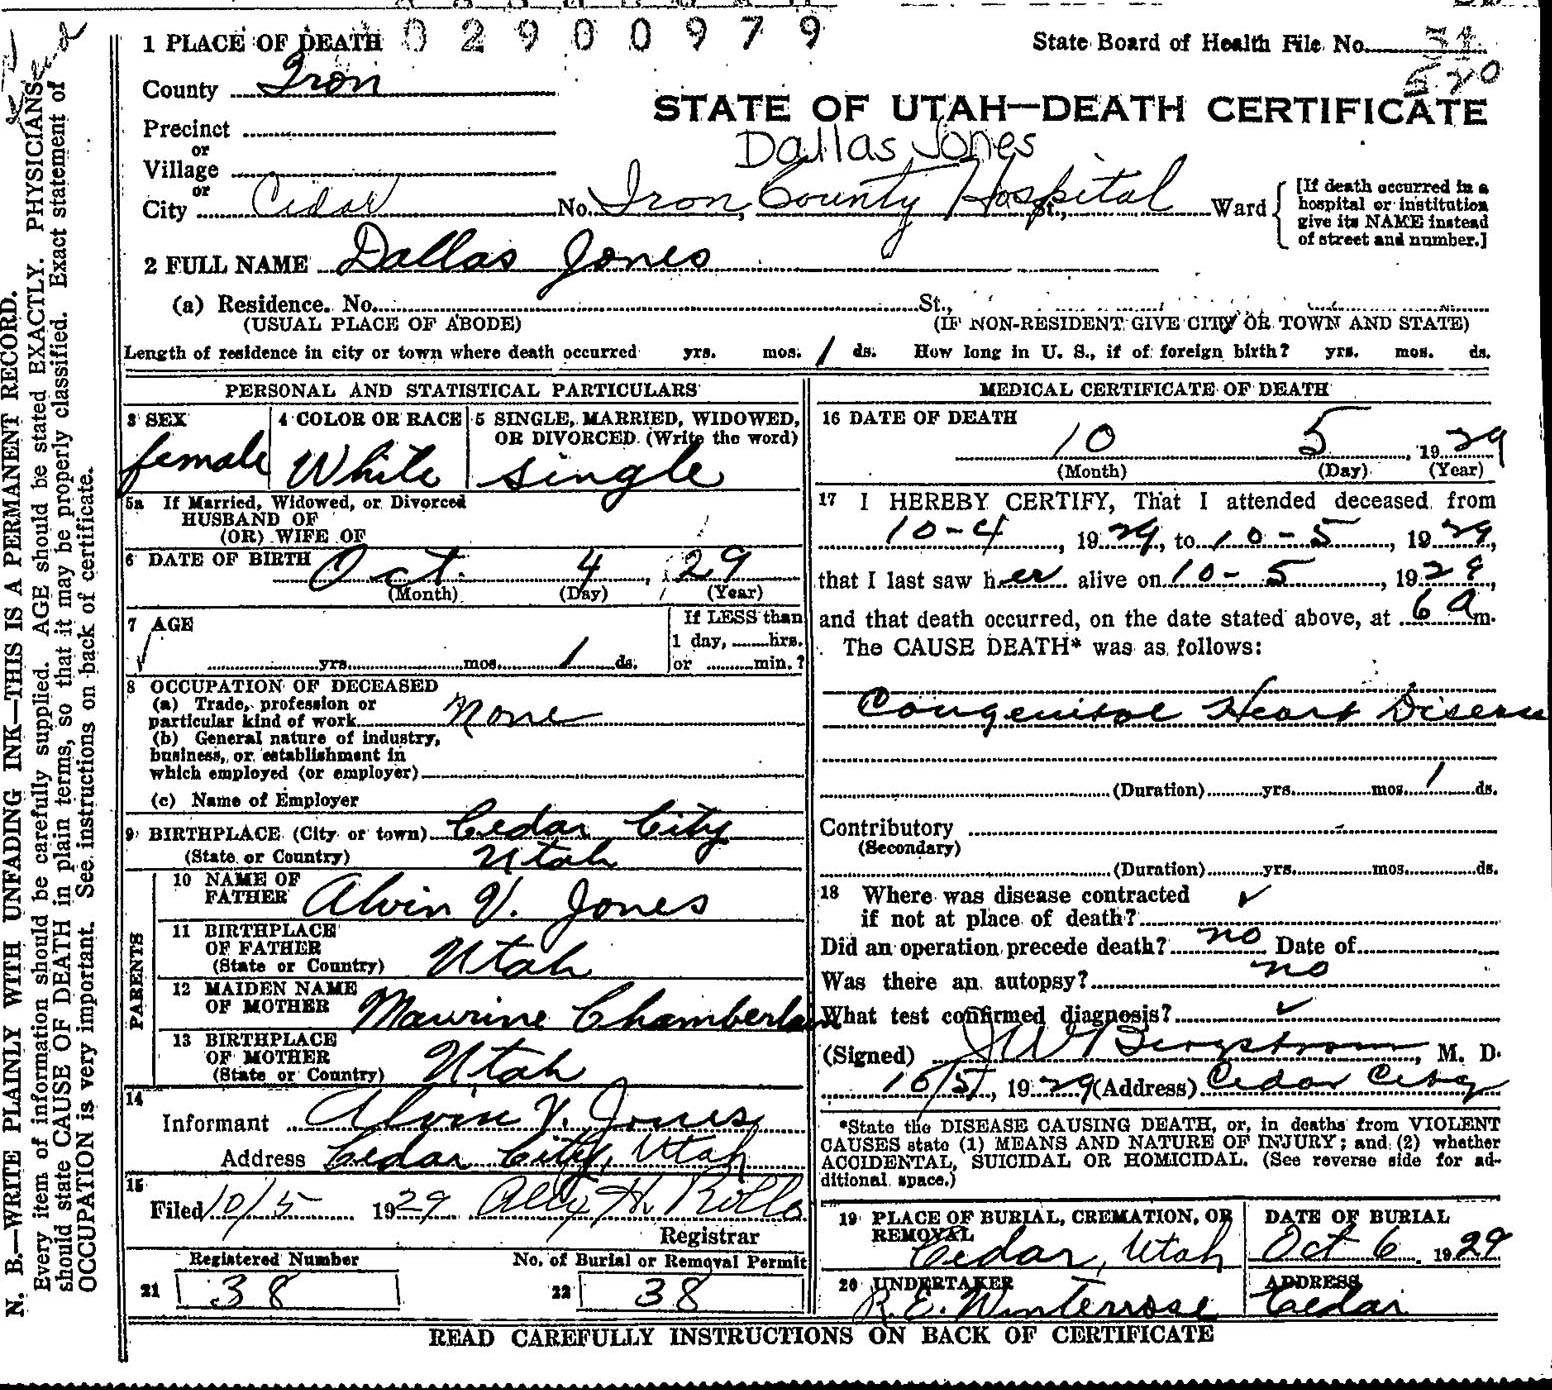 02900979
1 PLACE OF DEATH
State Board of Health File No.
520
County Iron
STATE OF UTAH—DEATH CERTIFICATE
Precinct
or
Dallas Jones
Village
or
City Cedar No. Iron County Hospital St., Ward
[If death occurred in a
hospital or institution
give its NAME instead
of street and number.]
2 FULL NAME Dallas Jones
(a) Residence. No. St.,
(USUAL PLACE OF ABODE) (IF NON-RESIDENT GIVE CITY OR TOWN AND STATE)
Length of residence in city or town where death occurred yrs. mos. 1 ds. How long in U. S., if of foreign birth? yrs. mos. ds.
PERSONAL AND STATISTICAL PARTICULARS
3 SEX
female
4 COLOR OR RACE
White
5 SINGLE, MARRIED, WIDOWED,
OR DIVORCED. (Write the word)
single
5a If Married, Widowed, or Divorced
HUSBAND OF
(OR) WIFE OF
6 DATE OF BIRTH Oct. 4, 29
(Month) (Day) (Year)
7 AGE
yrs. mos. 1 ds.
If LESS than
1 day, hrs.
or min.?
8 OCCUPATION OF DECEASED
(a) Trade, profession or
particular kind of work None
(b) General nature of industry,
business, or establishment in
which employed (or employer)
(c) Name of Employer
9 BIRTHPLACE (City or town) Cedar City
(State or Country) Utah
PARENTS
10 NAME OF
FATHER Alvin V. Jones
11 BIRTHPLACE
OF FATHER
(State or Country) Utah
12 MAIDEN NAME
OF MOTHER Maurine Chamberlain
13 BIRTHPLACE
OF MOTHER
(State or Country) Utah
14
Informant Alvin V. Jones
Address Cedar City, Utah
15
Filed 10/5 1929 H.
Registrar
Registered Number No. of Burial or Removal Permit
21 38 22 38
MEDICAL CERTIFICATE OF DEATH
16 DATE OF DEATH
10 5, 1929
(Month) (Day) (Year)
17 I HEREBY CERTIFY, That I attended deceased from
10-4, 1929, to 10-5, 1929,
that I last saw her alive on 10-5, 1929,
and that death occurred, on the date stated above, at 6 A m.
The CAUSE DEATH* was as follows:
Congenital Heart Disease
(Duration) yrs. mos. 1 ds.
Contributory
(Secondary)
(Duration) yrs. mos. ds.
18 Where was disease contracted
if not at place of death? ✓
Did an operation precede death? no Date of
Was there an autopsy? no
What test confirmed diagnosis? ✓
(Signed) J W Bergstrom, M. D.
10/5, 1929 (Address) Cedar City
*State the DISEASE CAUSING DEATH, or, in deaths from VIOLENT
CAUSES state (1) MEANS AND NATURE OF INJURY; and (2) whether
ACCIDENTAL, SUICIDAL OR HOMICIDAL. (See reverse side for ad-
ditional space.)
19 PLACE OF BURIAL, CREMATION, OR
REMOVAL
Cedar, Utah
DATE OF BURIAL
Oct 6 1929
20 UNDERTAKER
R. E. Winterrose
ADDRESS
Cedar
READ CAREFULLY INSTRUCTIONS ON BACK OF CERTIFICATE
N. B.—WRITE PLAINLY WITH UNFADING INK—THIS IS A PERMANENT RECORD.
Every item of information should be carefully supplied. AGE should be stated EXACTLY. PHYSICIANS
should state CAUSE OF DEATH in plain terms, so that it may be properly classified. Exact statement of
OCCUPATION is very important. See instructions on back of certificate.